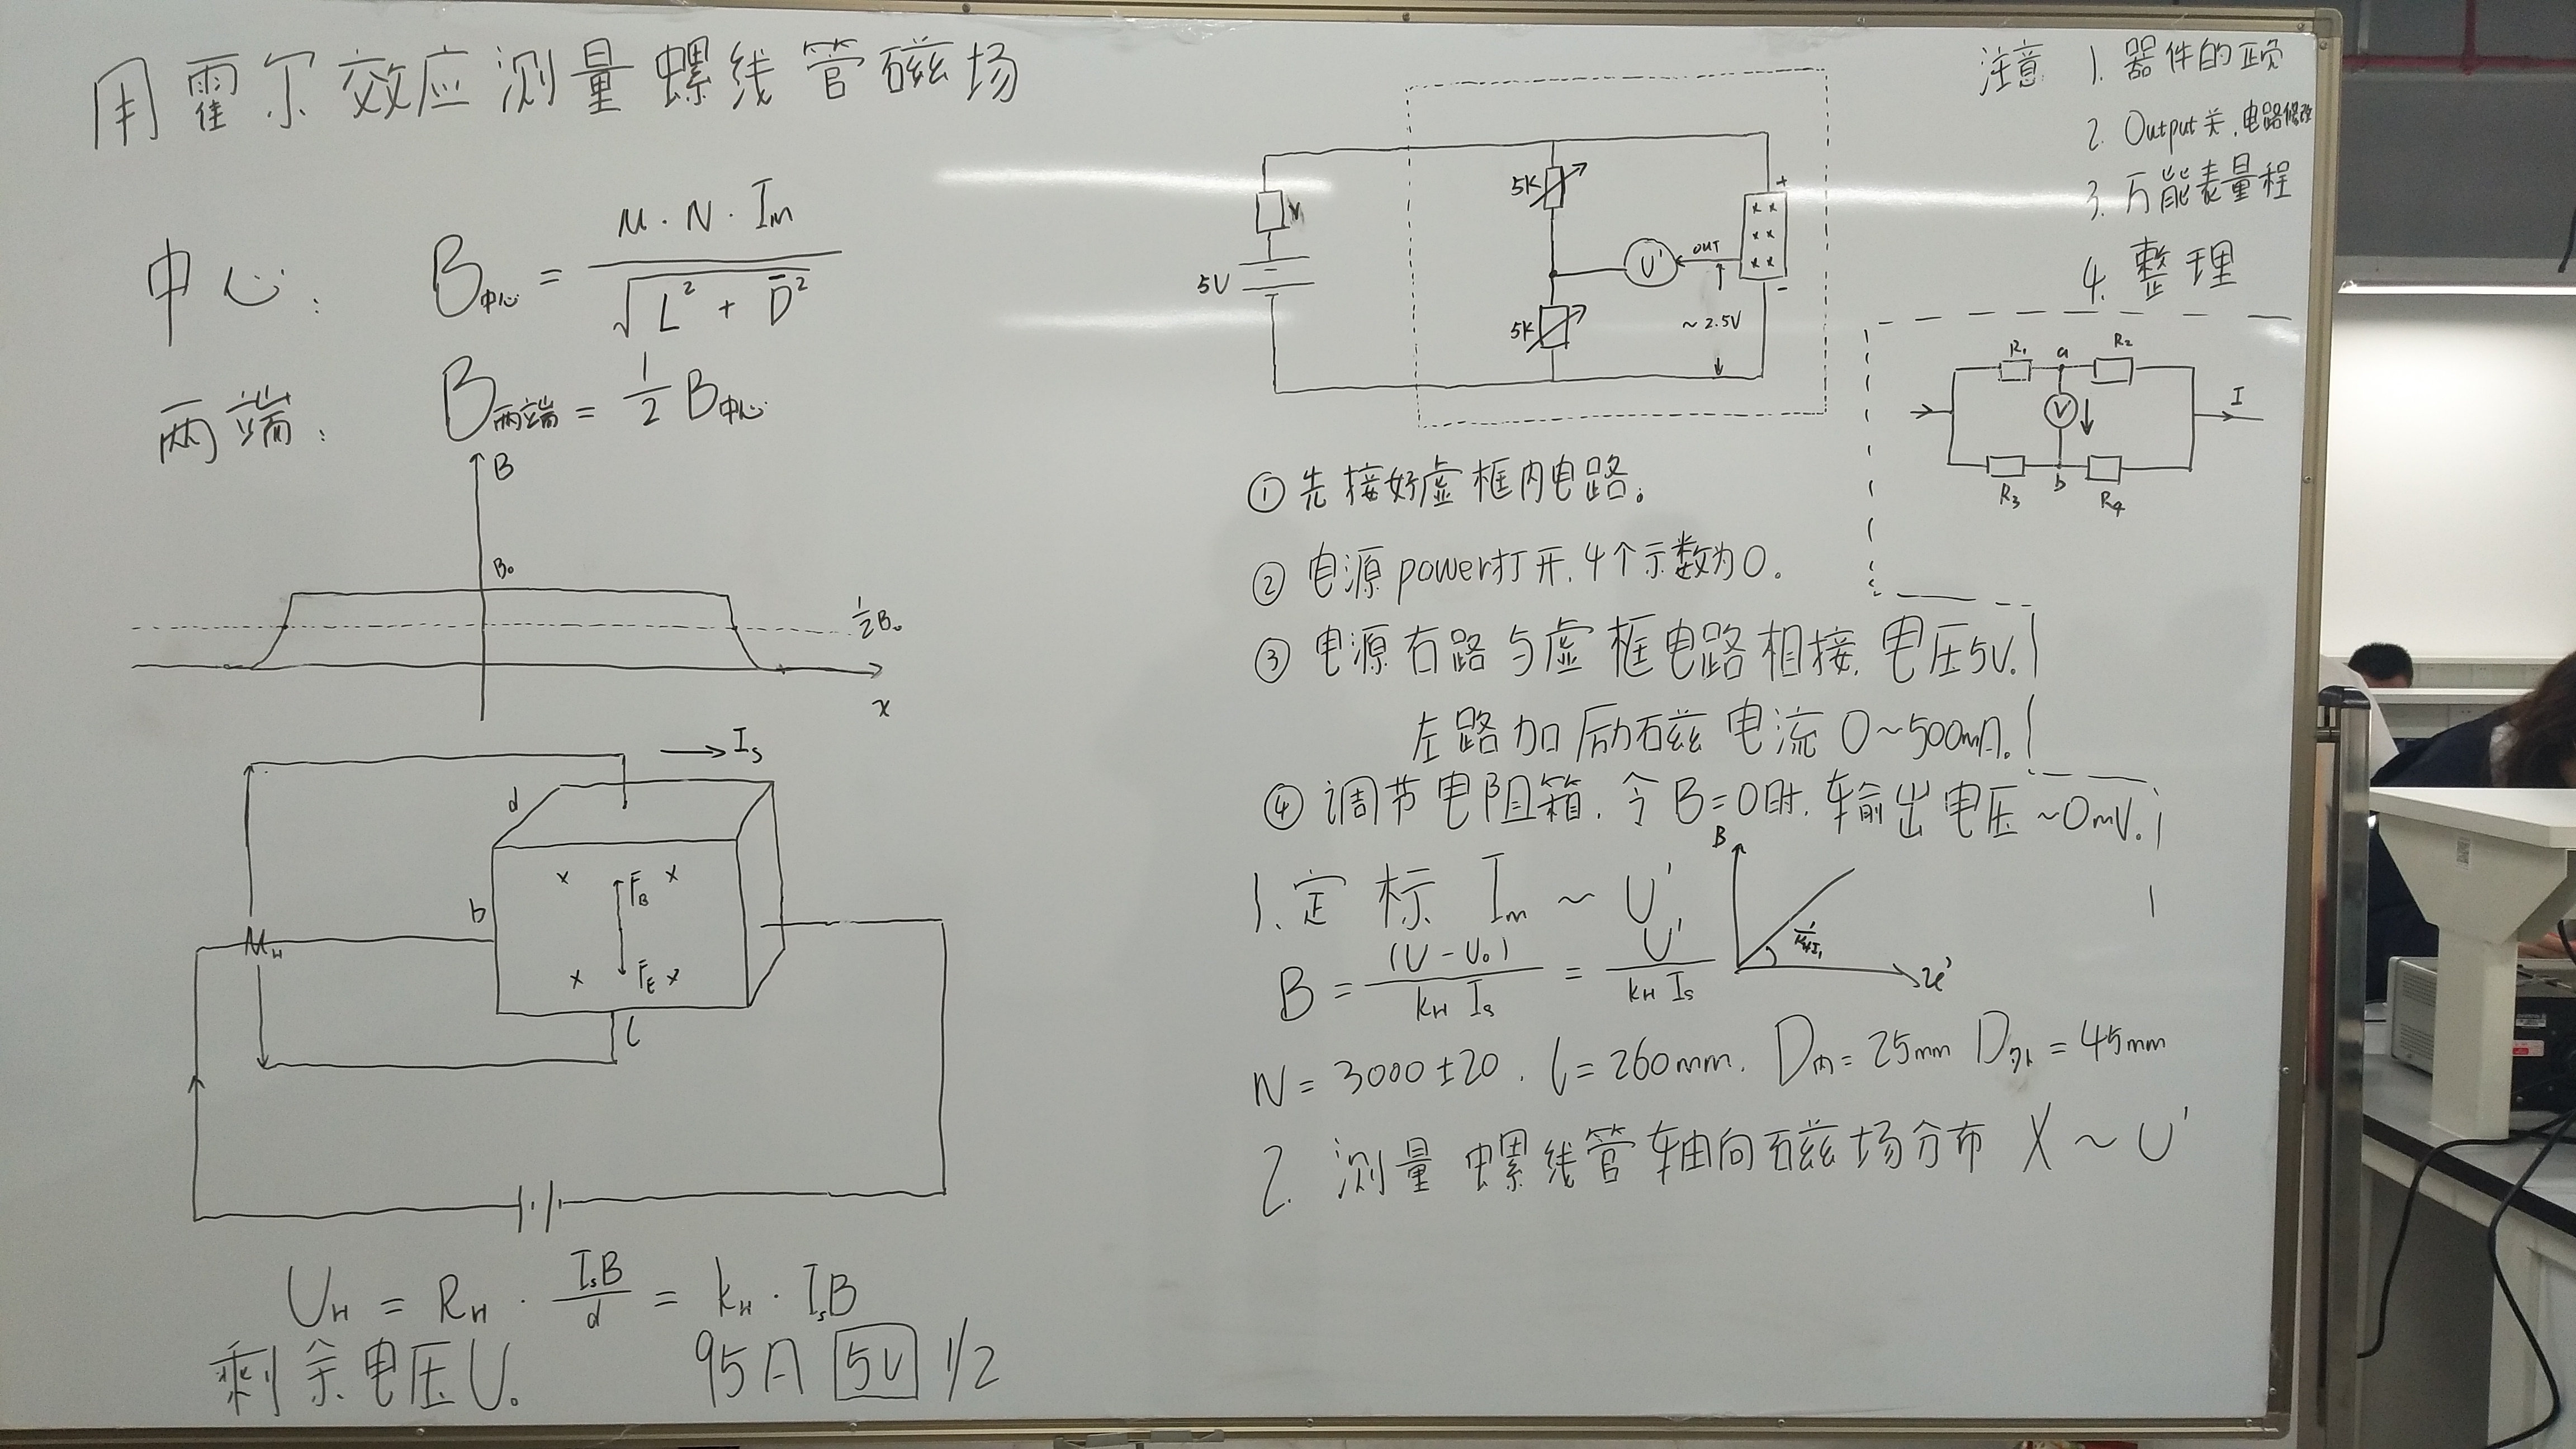 用霍尔效应测量螺线管磁场
中心: B中心 = μ·N·Im / √(L² + D̄²)
两端: B两端 = 1/2 B中心
B
B₀
1/2 B₀
x
Is
d
b
FB
FE
l
UH = RH · IsB/d = kH · IsB
剩余电压U₀ 95A 5V 1/2
5V
5K
5K
U'
OUT
~2.5V
+
-
注意 1. 器件的正负
2. Output关,电路修改
3. 万能表量程
4. 整理
R₁ a R₂
V
I
R₃ b R₄
① 先接好虚框内电路。
② 电源power打开,4个示数为0。
③ 电源右路与虚框电路相接,电压5V。
左路加励磁电流0~500mA。
④ 调节电阻箱,令B=0时,输出电压~0mV。
1. 定标 Im ~ U'
B = (U-U₀)/(kH Is) = U'/(kH Is)
B
u'
N = 3000±20. l = 260mm. D内 = 25mm D外 = 45mm
2. 测量螺线管轴向磁场分布 X ~ U'